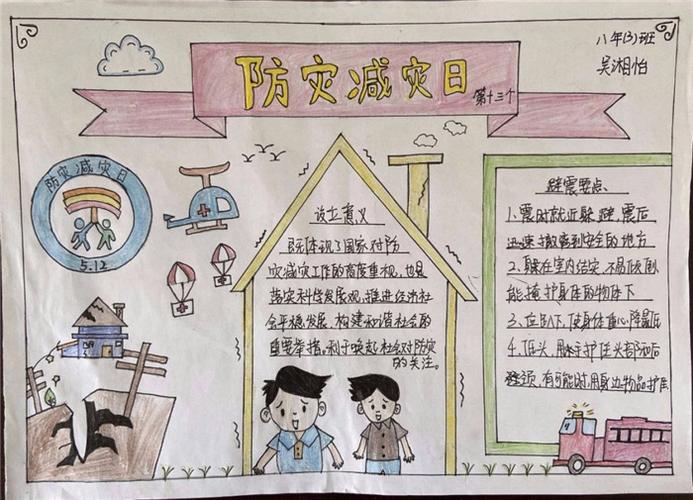 八年(3)班
吴湘怡
防灾减灾日
第十三个
防灾减灾日
5.12
设立意义
既体现了国家对防
灾减灾工作的高度重视,也是
落实科学发展观,推进经济社
会平稳发展,构建和谐社会的
重要举措。利于唤起社会对防灾
的关注。
避震要点、
1、震时就近躲避,震后
迅速撤离到安全的地方
2、躲在室内结实、不易倾倒
能掩护身体的物体下
3、使身体重心降最低
4、低头,用手护住头部和后
有可能时,用身边物品护住